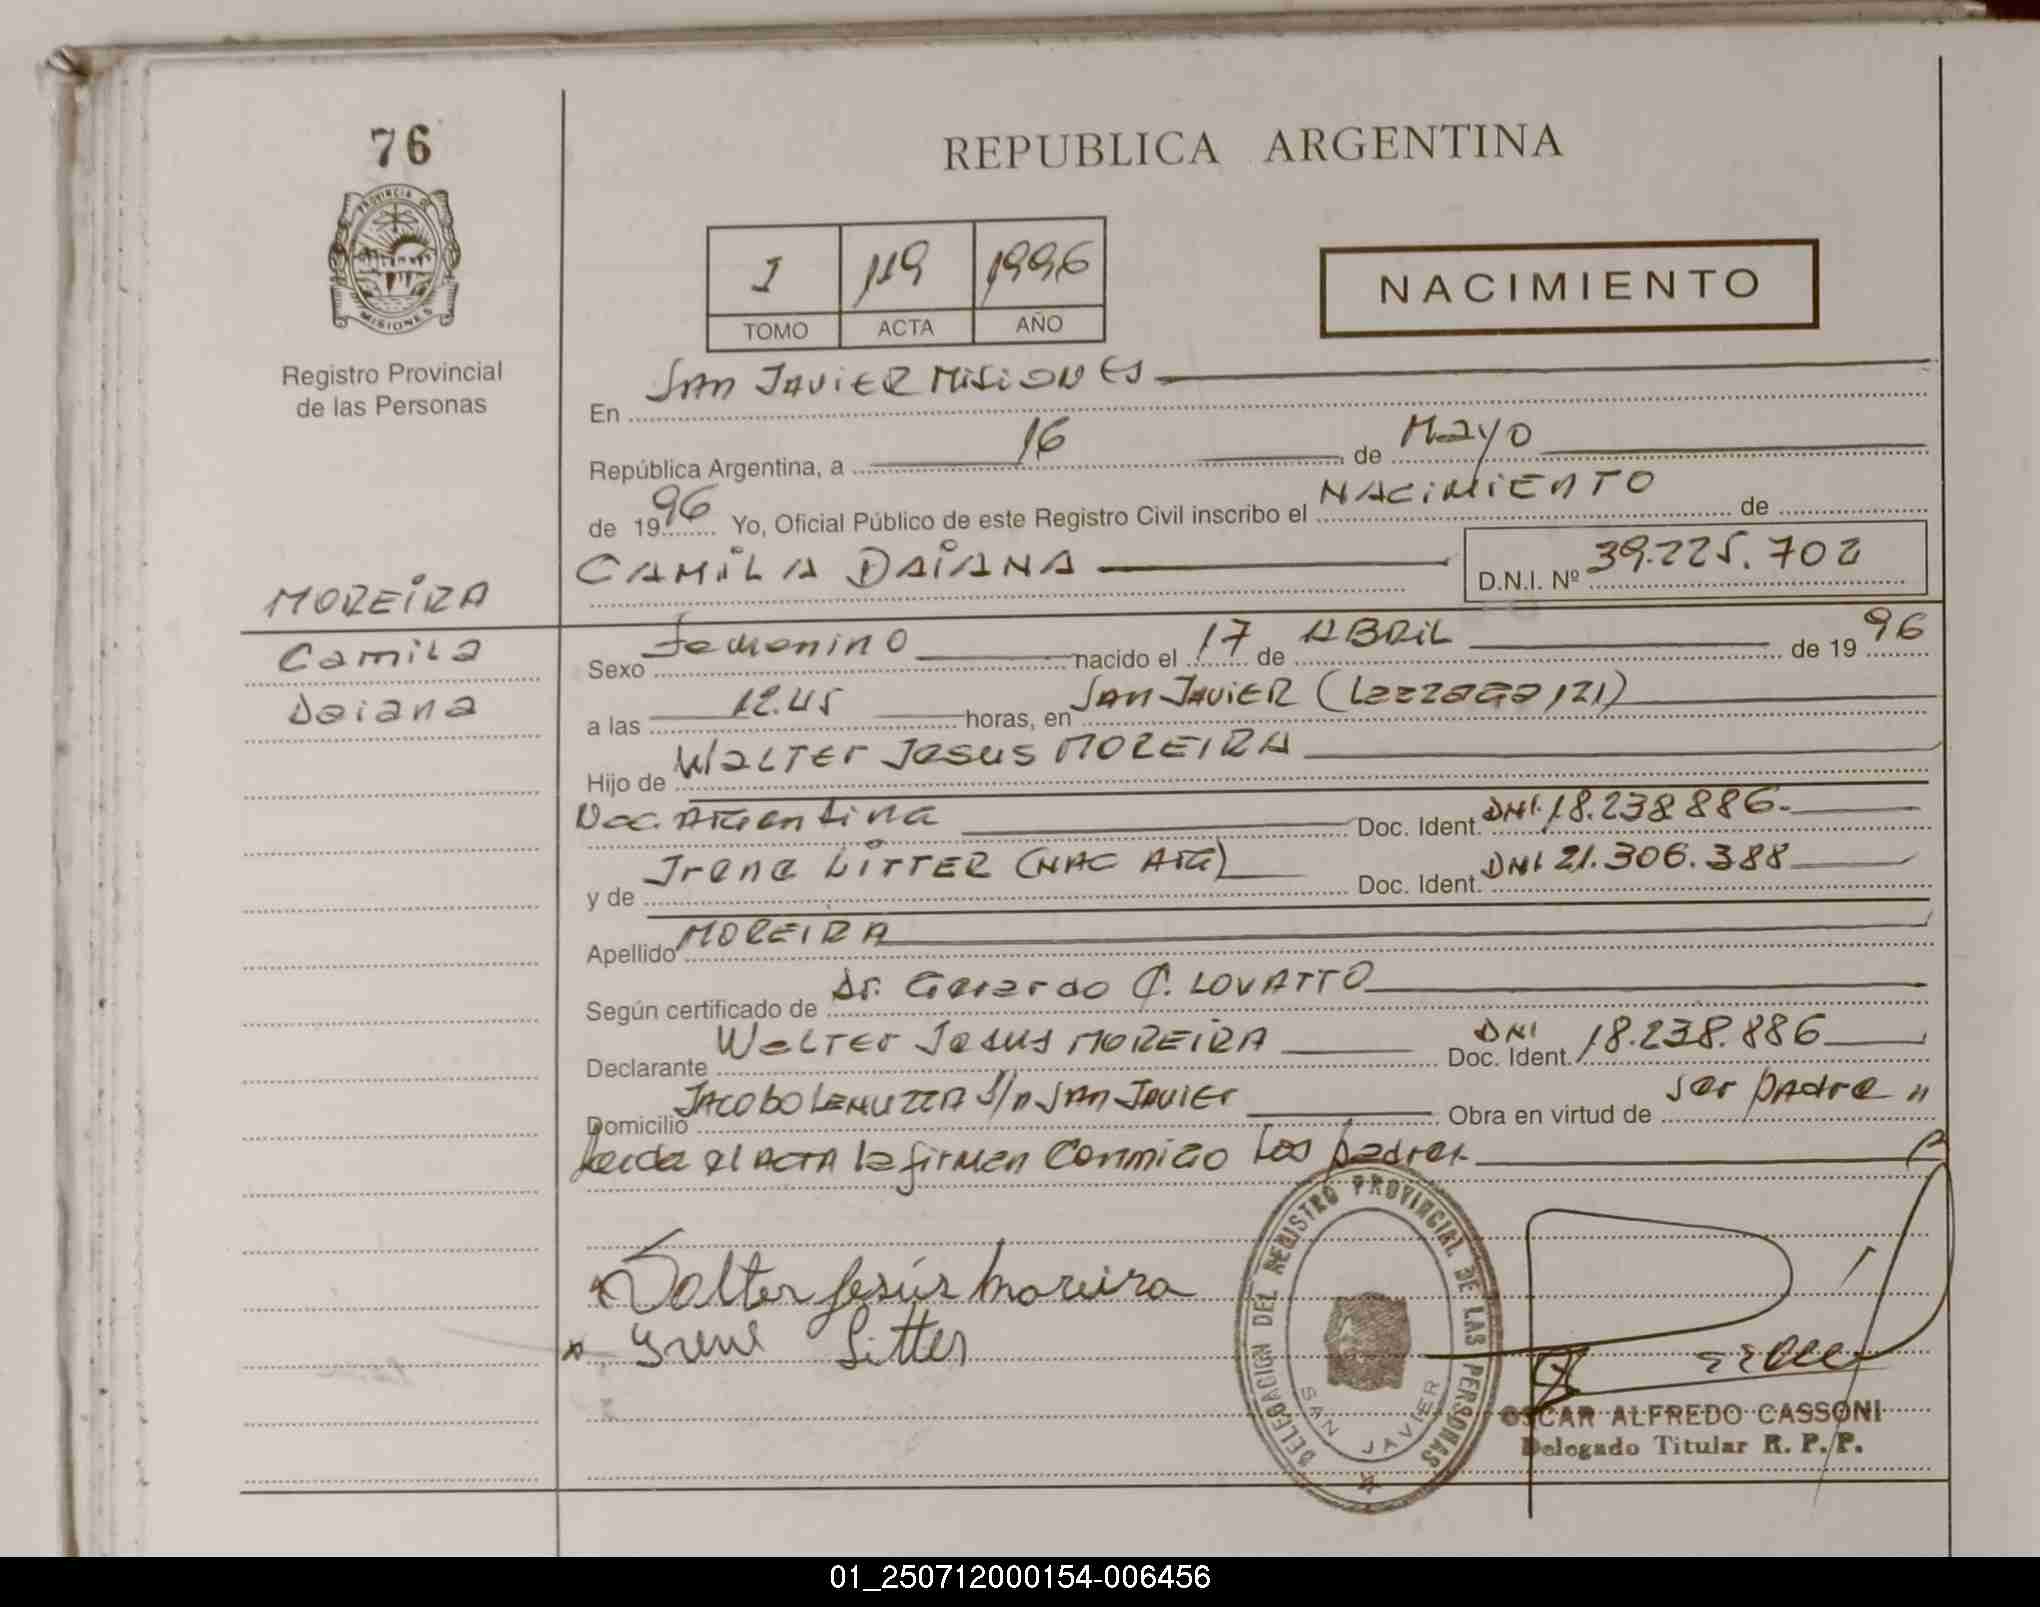 76
PROVINCIA DE
MISIONES
Registro Provincial
de las Personas
MOREIRA
Camila
Daiana
REPUBLICA ARGENTINA
I 119 1996
TOMO ACTA AÑO
NACIMIENTO
En SAN JAVIER MISIONES
República Argentina, a 16 de Mayo
de 1996 Yo, Oficial Público de este Registro Civil inscribo el NACIMIENTO de
CAMILA DAIANA D.N.I. Nº 39.225.702
Sexo Femenino nacido el 17 de ABRIL de 1996
a las 12.45 horas, en SAN JAVIER (121)
Hijo de WALTER Jesus MOREIRA
Argentina Doc. Ident. DNI. 18.238.886.
y de Irene LITTER (NAC ARG) Doc. Ident. DNI 21.306.388
Apellido MOREIRA
Según certificado de Dr. Gerardo C. LOVATTO
Declarante Walter Jesus MOREIRA Doc. Ident. DNI 18.238.886
Domicilio JACOBO S/N SAN JAVIER Obra en virtud de ser padre "
Leida el ACTA la firman Conmigo Los padres.
Walter Jesús Moreira
Irene Litter
DELEGACION DEL REGISTRO PROVINCIAL DE LAS PERSONAS
SAN JAVIER
OSCAR ALFREDO CASSONI
Delegado Titular R. P. P.
01_250712000154-006456